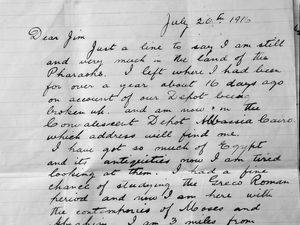 July 26th 1916
Dear Jim
Just a line to say I am still
and very much in the land of the
Pharaohs. I left where I had been
for over a year about 16 days ago
on account of our Depot being
broken up. and am now in the
Convalescent Depot Abbassia Cairo
which address will find me.
I have got so much of Egypt
and its antiquities now I am tired
looking at them. I had a fine
chance of studying the Greco Roman
period and now I am here with
the contempories of Moses and
Abraham. I am 3 miles from